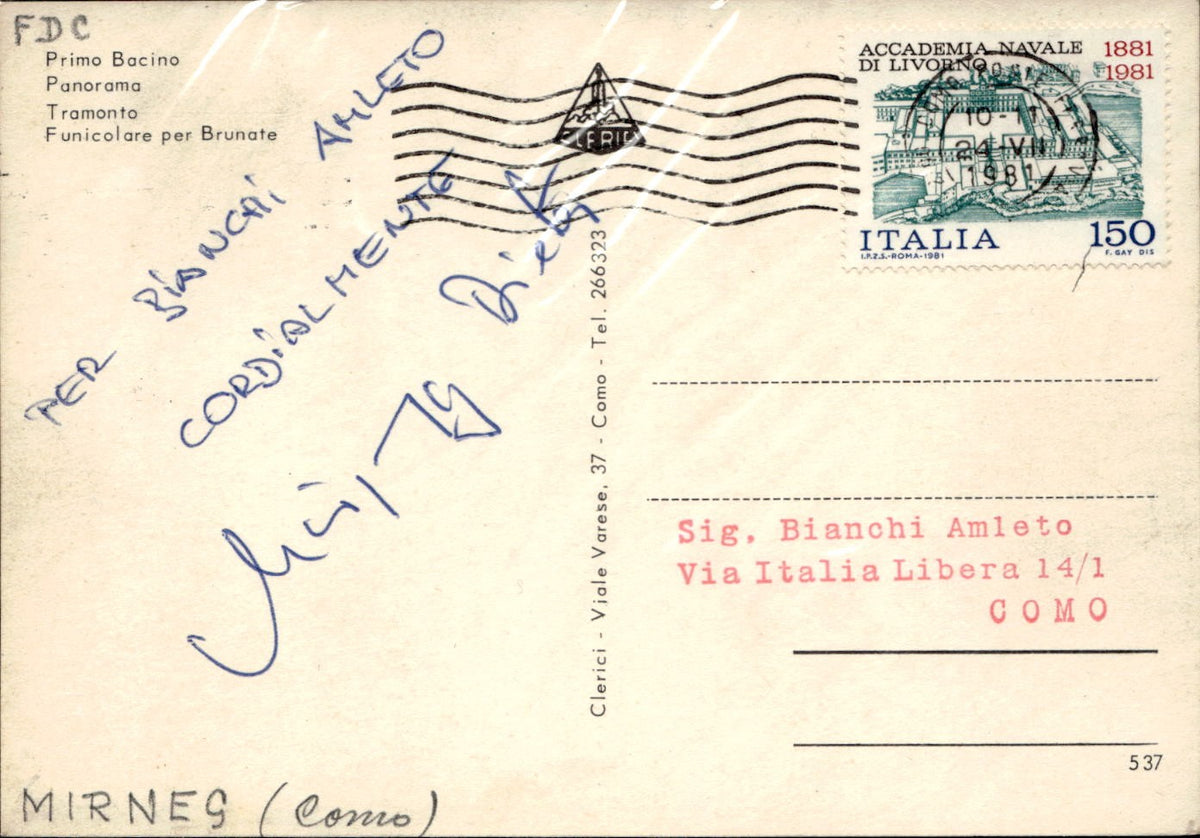 FDC
Primo Bacino
Panorama
Tramonto
Funicolare per Brunate
PER BiANCHi AMLETO
CORDiALMENTE
MIRNEG (Como)
CLERICI
Clerici - Viale Varese, 37 - Como - Tel. 266323
ACCADEMIA NAVALE
DI LIVORNO
1881
1981
10-11
24-VII
1981
ITALIA
150
I.P.Z.S.-ROMA-1981
F. GAY DIS
Sig. Bianchi Amleto
Via Italia Libera 14/1
COMO
537